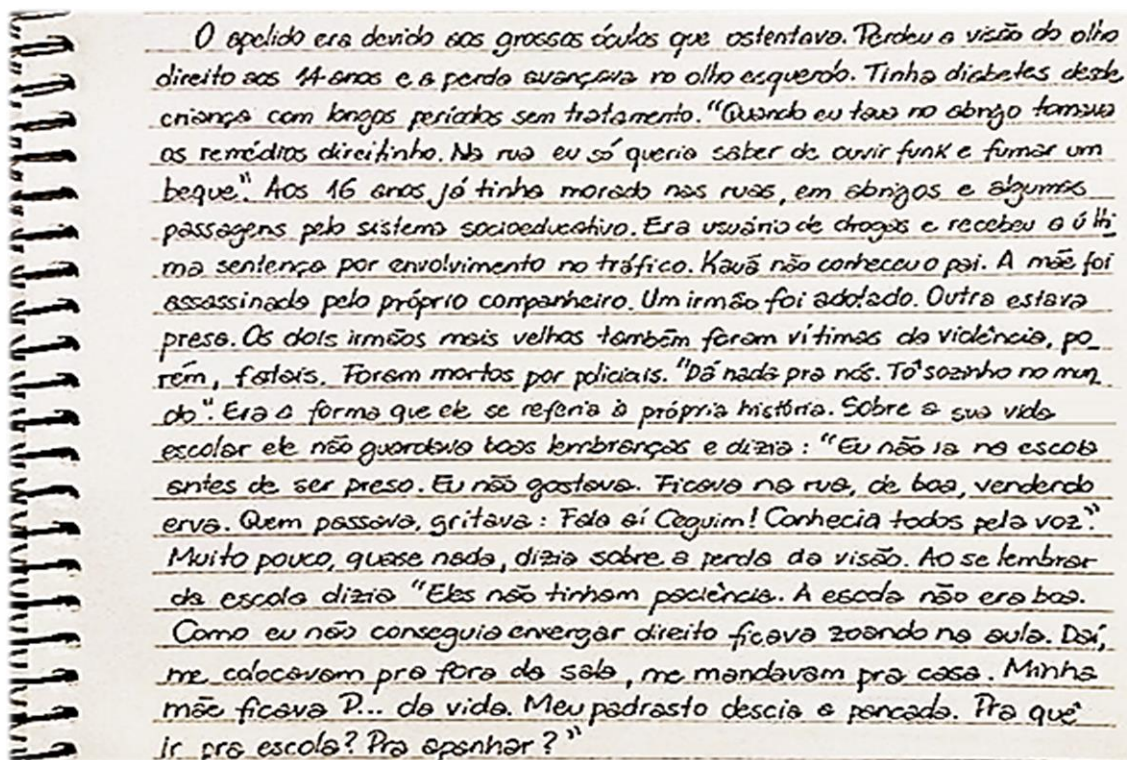 O apelido era devido aos grossos óculos que ostentava. Perdeu a visão do olho
direito aos 14 anos e a perda avançava no olho esquerdo. Tinha diabetes desde
criança com longos períodos sem tratamento. "Quando eu tava no abrigo tomava
os remédios direitinho. Na rua eu só queria saber de ouvir funk e fumar um
beque". Aos 16 anos já tinha morado nas ruas, em abrigos e algumas
passagens pelo sistema socioeducativo. Era usuário de drogas e recebeu a últi
ma sentença por envolvimento no tráfico. Kauã não conheceu o pai. A mãe foi
assassinada pelo próprio companheiro. Um irmão foi adotado. Outra estava
presa. Os dois irmãos mais velhos também foram vítimas da violência, po_
rém, fatais. Foram mortos por policiais. "Dá nada pra nós. Tô sozinho no mun_
do". Era a forma que ele se referia à própria história. Sobre a sua vida
escolar ele não guardava boas lembranças e dizia: "Eu não ia na escola
antes de ser preso. Eu não gostava. Ficava na rua, de boa, vendendo
erva. Quem passava, gritava: Fala aí Ceguim! Conhecia todos pela voz".
Muito pouco, quase nada, dizia sobre a perda da visão. Ao se lembrar
da escola dizia "Eles não tinham paciência. A escola não era boa.
Como eu não conseguia enxergar direito ficava zoando na aula. Daí,
me colocavam pra fora da sala, me mandavam pra casa. Minha
mãe ficava P... da vida. Meu padrasto descia a pancada. Pra quê
ir pra escola? Pra apanhar?"